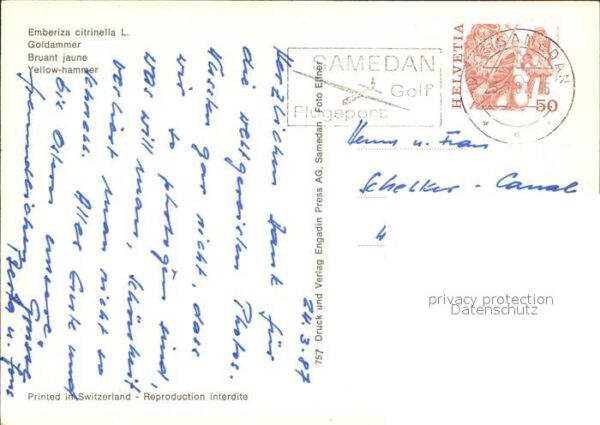 Emberiza citrinella L.
Goldammer
Bruant jaune
Yellow-hammer
SAMEDAN
Golf
Flugsport
HELVETIA
50
SAMEDAN
24.3.87
Herzlichen Dank für
die wohlgereisten Photos.
Wussten gar nicht, dass
wir so photogen sind,
was will man, Schönheit
verliert man nicht so
schnell. Alles Gute und
bis Ostern
freundlichen Grüsse
u. Jens
Herrn u. Frau
Schelker - Canal
4
757 Druck und Verlag Engadin Press AG, Samedan Foto Elfner
Printed in Switzerland - Reproduction interdite
privacy protection
Datenschutz